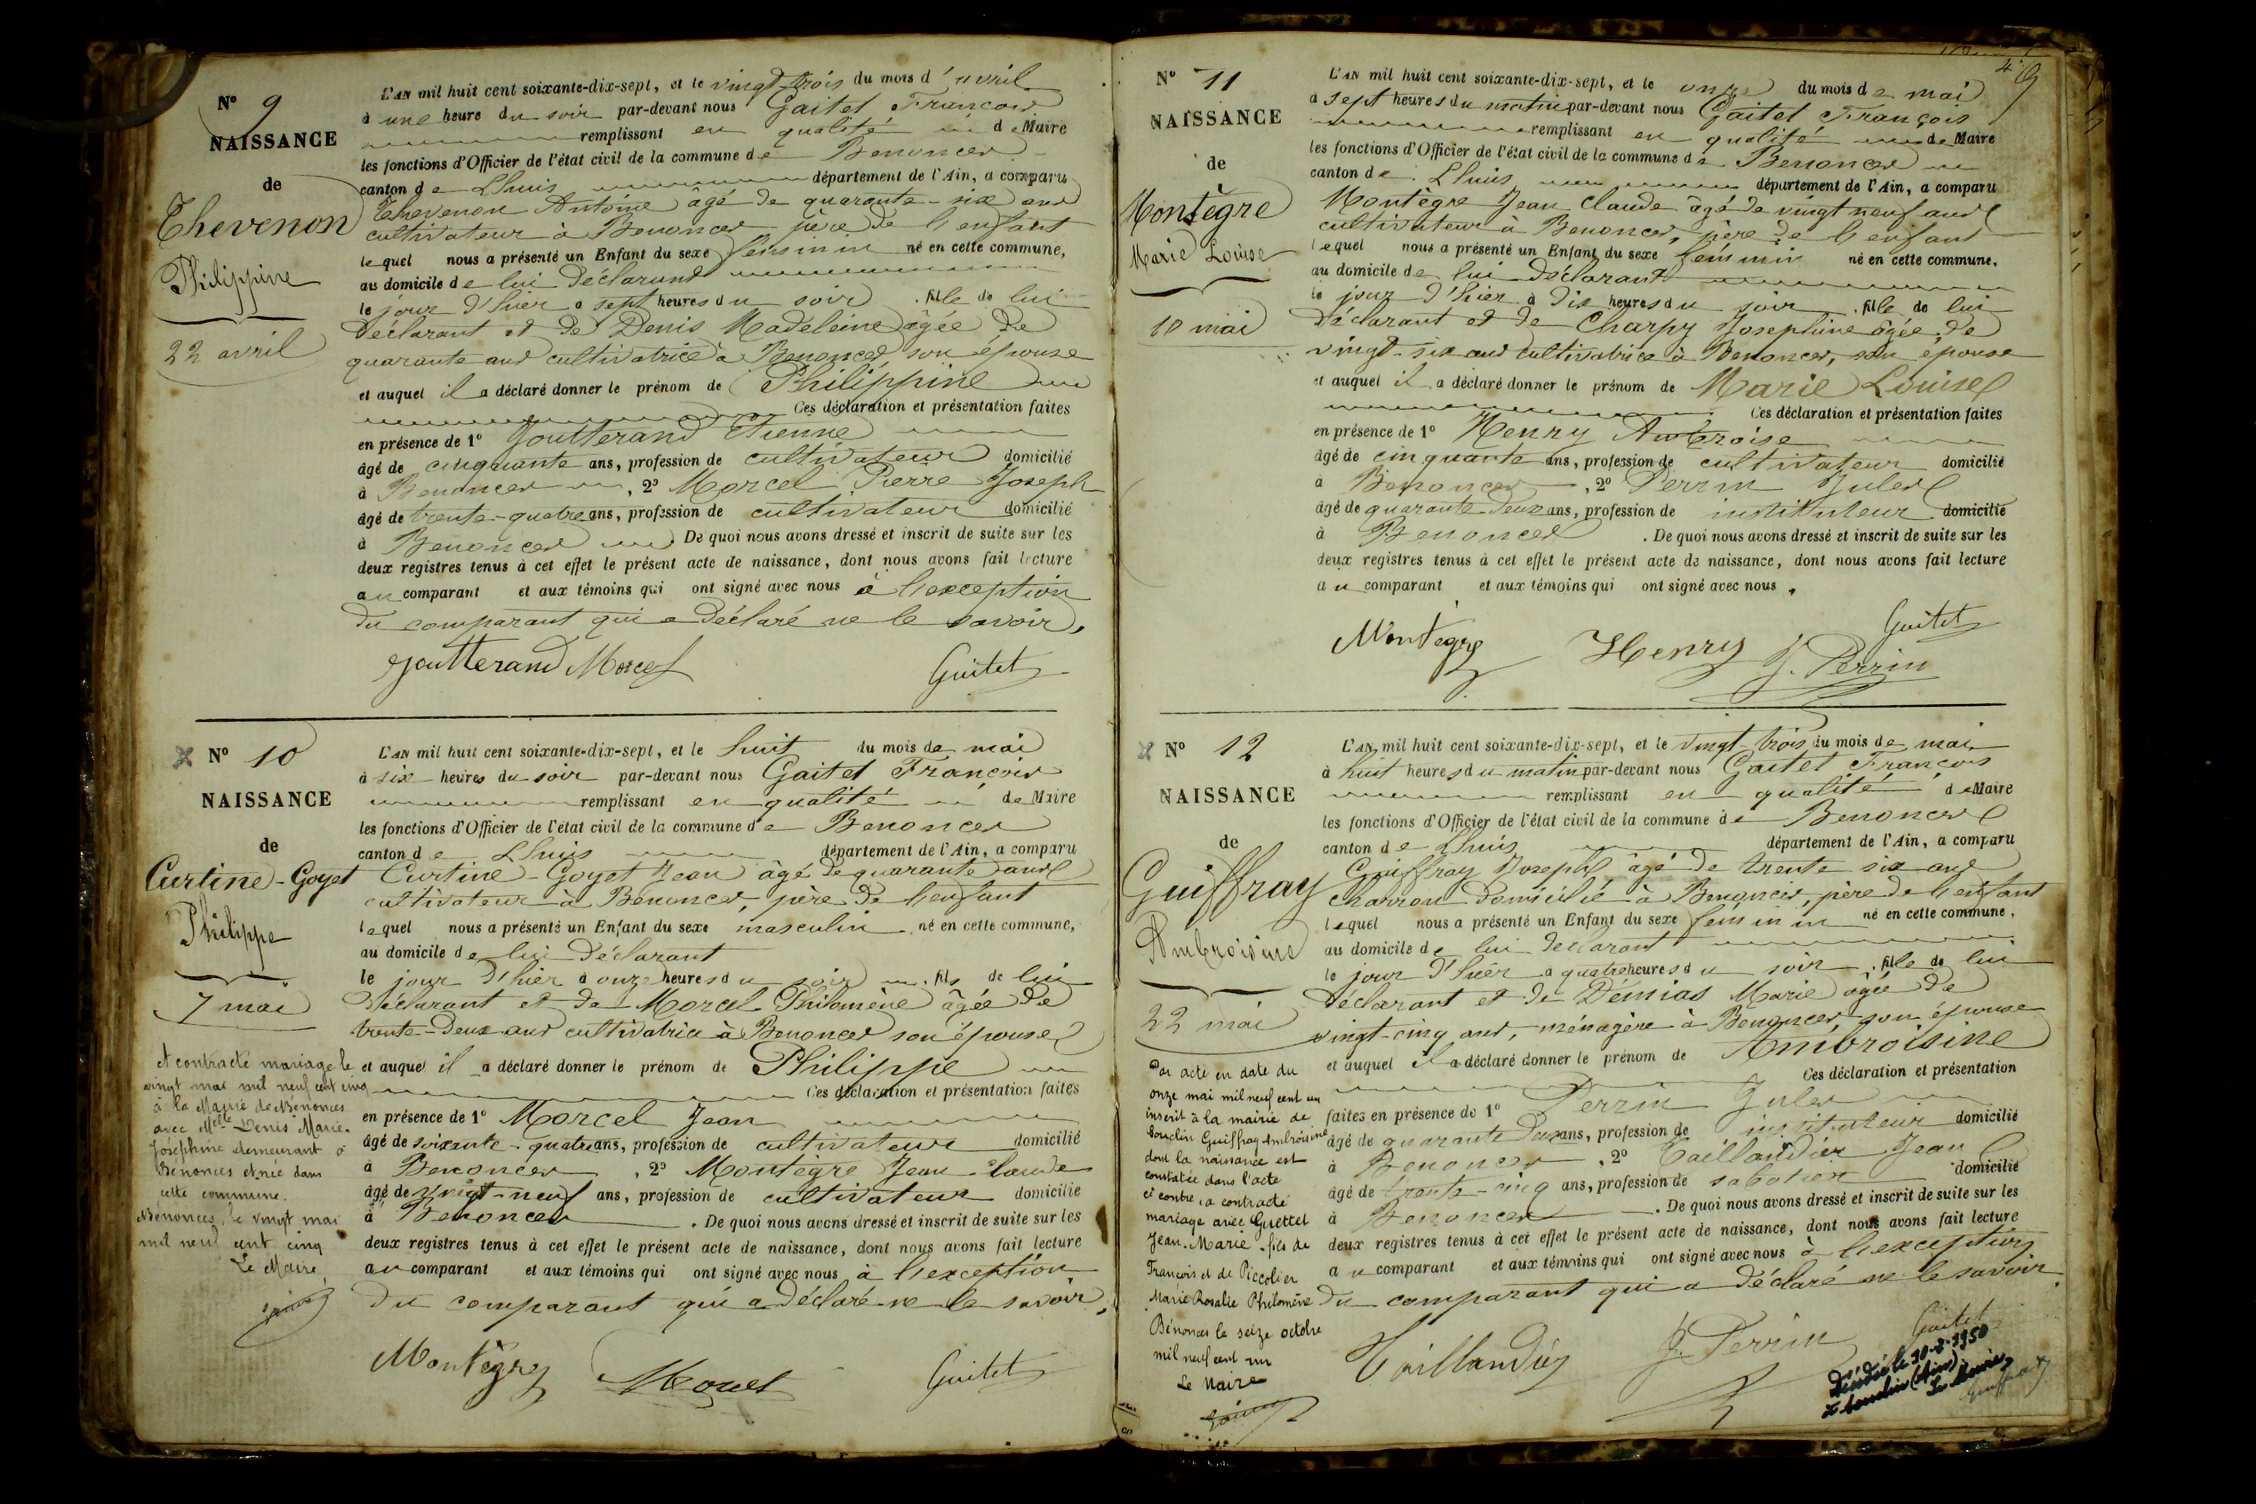 N° 9
NAISSANCE
de
Thevenon
Philippine
22 avril
L'AN mil huit cent soixante-dix-sept, et le vingt-trois du mois d'avril
à une heure du soir par-devant nous Gaitet François
remplissant en qualité de Maire
les fonctions d'Officier de l'état civil de la commune de Benonces
canton de Lhuis département de l'Ain, a comparu
Thevenon Antoine âgé de quarante-six ans
cultivateur à Benonces père de l'enfant
lequel nous a présenté un Enfant du sexe féminin né en cette commune,
au domicile de lui déclarant
le jour d'hier à sept heures du soir fille de lui
déclarant et de Denis Madeleine âgée de
quarante ans cultivatrice à Benonces son épouse
et auquel il a déclaré donner le prénom de Philippine
Ces déclaration et présentation faites
en présence de 1° Goutterand Etienne
âgé de cinquante ans, profession de cultivateur domicilié
à Benonces, 2° Morcel Pierre Joseph
âgé de trente-quatre ans, profession de cultivateur domicilié
à Benonces De quoi nous avons dressé et inscrit de suite sur les
deux registres tenus à cet effet le présent acte de naissance, dont nous avons fait lecture
au comparant et aux témoins qui ont signé avec nous à l'exception
du comparant qui a déclaré ne le savoir,
Goutterand Morcel Gaitet
N° 10
NAISSANCE
de
Curtine-Goyet
Philippe
7 mai
L'AN mil huit cent soixante-dix-sept, et le huit du mois de mai
à six heures du soir par-devant nous Gaitet François
remplissant en qualité de Maire
les fonctions d'Officier de l'état civil de la commune de Benonces
canton de Lhuis département de l'Ain, a comparu
Curtine-Goyet Jean âgé de quarante ans
cultivateur à Benonces, père de l'enfant
lequel nous a présenté un Enfant du sexe masculin né en cette commune,
au domicile de lui déclarant
le jour d'hier à onze heures du soir fils de lui
déclarant et de Morcel Philomène âgée de
trente-deux ans cultivatrice à Benonces son épouse
et auquel il a déclaré donner le prénom de Philippe
Ces déclaration et présentation faites
en présence de 1° Morcel Jean
âgé de soixante-quatre ans, profession de cultivateur domicilié
à Benonces, 2° Montègre Jean Claude
âgé de vingt-neuf ans, profession de cultivateur domicilié
à Benonces. De quoi nous avons dressé et inscrit de suite sur les
deux registres tenus à cet effet le présent acte de naissance, dont nous avons fait lecture
au comparant et aux témoins qui ont signé avec nous à l'exception
du comparant qui a déclaré ne le savoir,
Montègre Morcel Gaitet
A contracté mariage le
vingt mai mil neuf cent cinq
à la Mairie de Bénonces
avec Melle Denis Marie-
Joséphine demeurant à
Bénonces et née dans
cette commune.
Bénonces, le vingt mai
mil neuf cent cinq
Le Maire,
N° 11
NAISSANCE
de
Montègre
Marie Louise
10 mai
L'AN mil huit cent soixante-dix-sept, et le onze du mois de mai
à sept heures du matin par-devant nous Gaitet François
remplissant en qualité de Maire
les fonctions d'Officier de l'état civil de la commune de Benonces
canton de Lhuis département de l'Ain, a comparu
Montègre Jean Claude âgé de vingt neuf ans
cultivateur à Benonces, père de l'enfant
lequel nous a présenté un Enfant du sexe féminin né en cette commune,
au domicile de lui déclarant
le jour d'hier à dix heures du soir fille de lui
déclarant et de Charpy Josephine âgée de
vingt-six ans cultivatrice à Benonces, son épouse
et auquel il a déclaré donner le prénom de Marie Louise
Ces déclaration et présentation faites
en présence de 1° Henry Ambroise
âgé de cinquante ans, profession de cultivateur domicilié
à Benonces, 2° Perrin Jules
âgé de quarante deux ans, profession de instituteur domicilié
à Benonces. De quoi nous avons dressé et inscrit de suite sur les
deux registres tenus à cet effet le présent acte de naissance, dont nous avons fait lecture
au comparant et aux témoins qui ont signé avec nous.
Montègre Henry J. Perrin Gaitet
N° 12
NAISSANCE
de
Guiffray
Ambroisine
22 mai
L'AN mil huit cent soixante-dix-sept, et le vingt-trois du mois de mai
à huit heures du matin par-devant nous Gaitet François
remplissant en qualité de Maire
les fonctions d'Officier de l'état civil de la commune de Benonces
canton de Lhuis département de l'Ain, a comparu
Guiffray Joseph âgé de trente six ans
charron domicilié à Benonces, père de l'enfant
lequel nous a présenté un Enfant du sexe féminin né en cette commune,
au domicile de lui déclarant
le jour d'hier à quatre heures du soir fille de lui
déclarant et de Démias Marie âgée de
vingt-cinq ans, ménagère à Benonces son épouse
et auquel il a déclaré donner le prénom de Ambroisine
Ces déclaration et présentation
faites en présence de 1° Perrin Jules
âgé de quarante deux ans, profession de instituteur domicilié
à Benonces, 2° Taillandier Jean
âgé de trente-cinq ans, profession de sabotier domicilié
à Benonces. De quoi nous avons dressé et inscrit de suite sur les
deux registres tenus à cet effet le présent acte de naissance, dont nous avons fait lecture
au comparant et aux témoins qui ont signé avec nous à l'exception
du comparant qui a déclaré ne le savoir.
Taillandier J. Perrin Gaitet
Par acte en date du
onze mai mil neuf cent un
inscrit à la mairie de
Souclin Guiffray Ambroisine
dont la naissance est
constatée dans l'acte
ci contre a contracté
mariage avec Guettet
Jean-Marie fils de
François et de Piccolier
Marie Rosalie Philomène
Bénonces le seize octobre
mil neuf cent un
Le Maire
Décédée le 10-2-1950
à Souclin (Ain)
Le Maire,
Guiffray